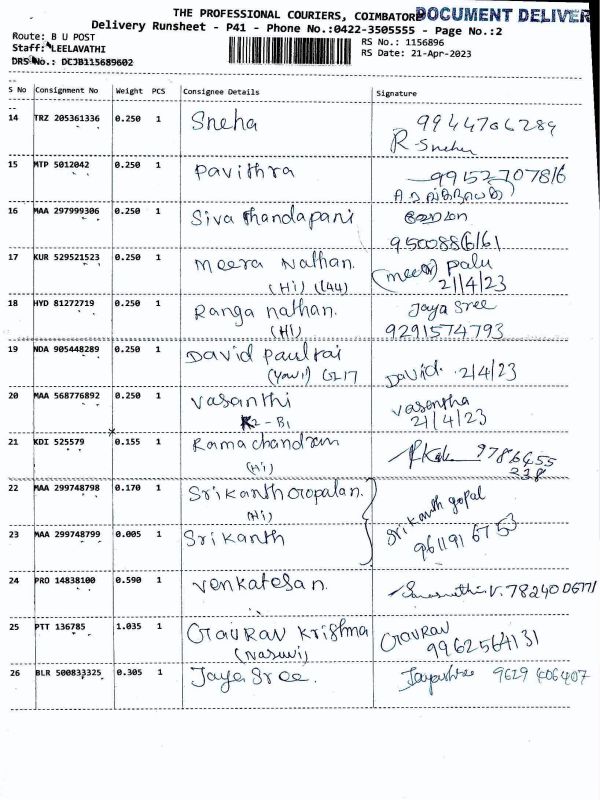 THE PROFESSIONAL COURIERS, COIMBATORE
DOCUMENT DELIVER
Delivery Runsheet - P41 - Phone No.:0422-3505555 - Page No.:2
Route: B U POST
Staff: LEELAVATHI
DRS No.: DCJB115689602
RS No.: 1156896
RS Date: 21-Apr-2023
S No Consignment No Weight PCS Consignee Details Signature
14 TRZ 205361336 0.250 1 Sneha 9944706289
R-Sneha
15 MTP 5012042 0.250 1 Pavithra 9915270 7816
16 MAA 297999306 0.250 1 Siva Thandapani
9500886161
17 KUR 529521523 0.250 1 Meera Nathan. (meera) palu
(Hi) (L44) 21/4/23
18 HYD 81272719 0.250 1 Ranga nathan. Jaya Sree
(Hi) 9291574793
19 NDA 905448289 0.250 1 David Paulrai
(Yawi) G217 David. 2/4/23
20 MAA 568776892 0.250 1 Vasanthi vasantha
K2-B1 21/4/23
21 KDI 525579 0.155 1 Ramachandram 9786455
(Hi) 338
22 MAA 299748798 0.170 1 Srikanth Gopalan. Srikanth gopal
(Hi)
23 MAA 299748799 0.005 1 Srikanth 9611916753
24 PRO 14838100 0.590 1 Venkatesan. V. 78240
25 PTT 136785 1.035 1 Gaurav Krishma GAURAV
(Nasuvi) 9962564131
26 BLR 500833325 0.305 1 Jaya Sree. Jayashree 9629 406407